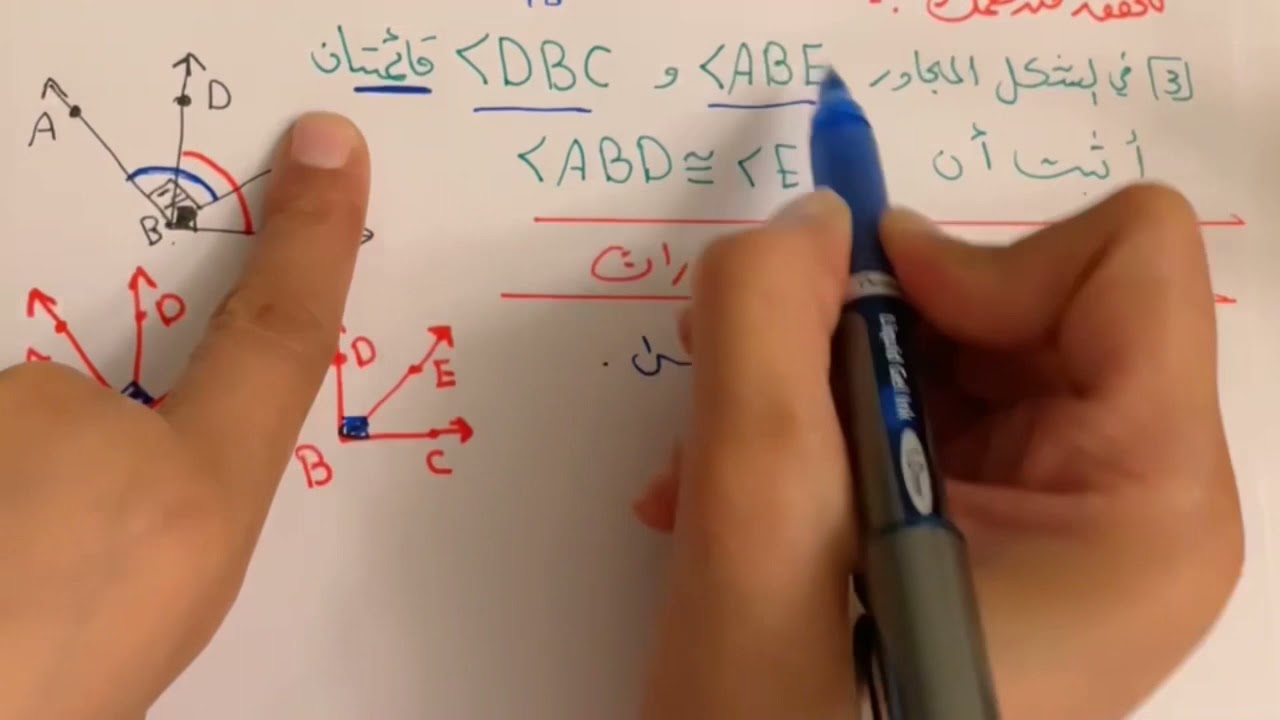 [3] في الشكل المجاور <ABE و <DBC قائمتان
أثبت أن <ABD ≅ <E
رات
A
D
B
D
D
E
B
C